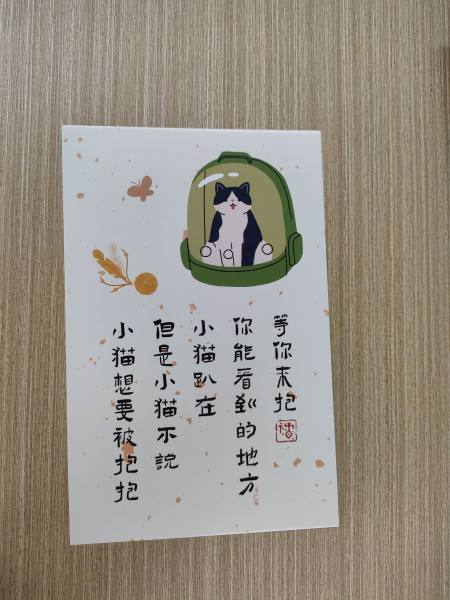 小猫想要被抱抱
但是小猫不說
小猫趴在
你能看到的地方
等你来抱